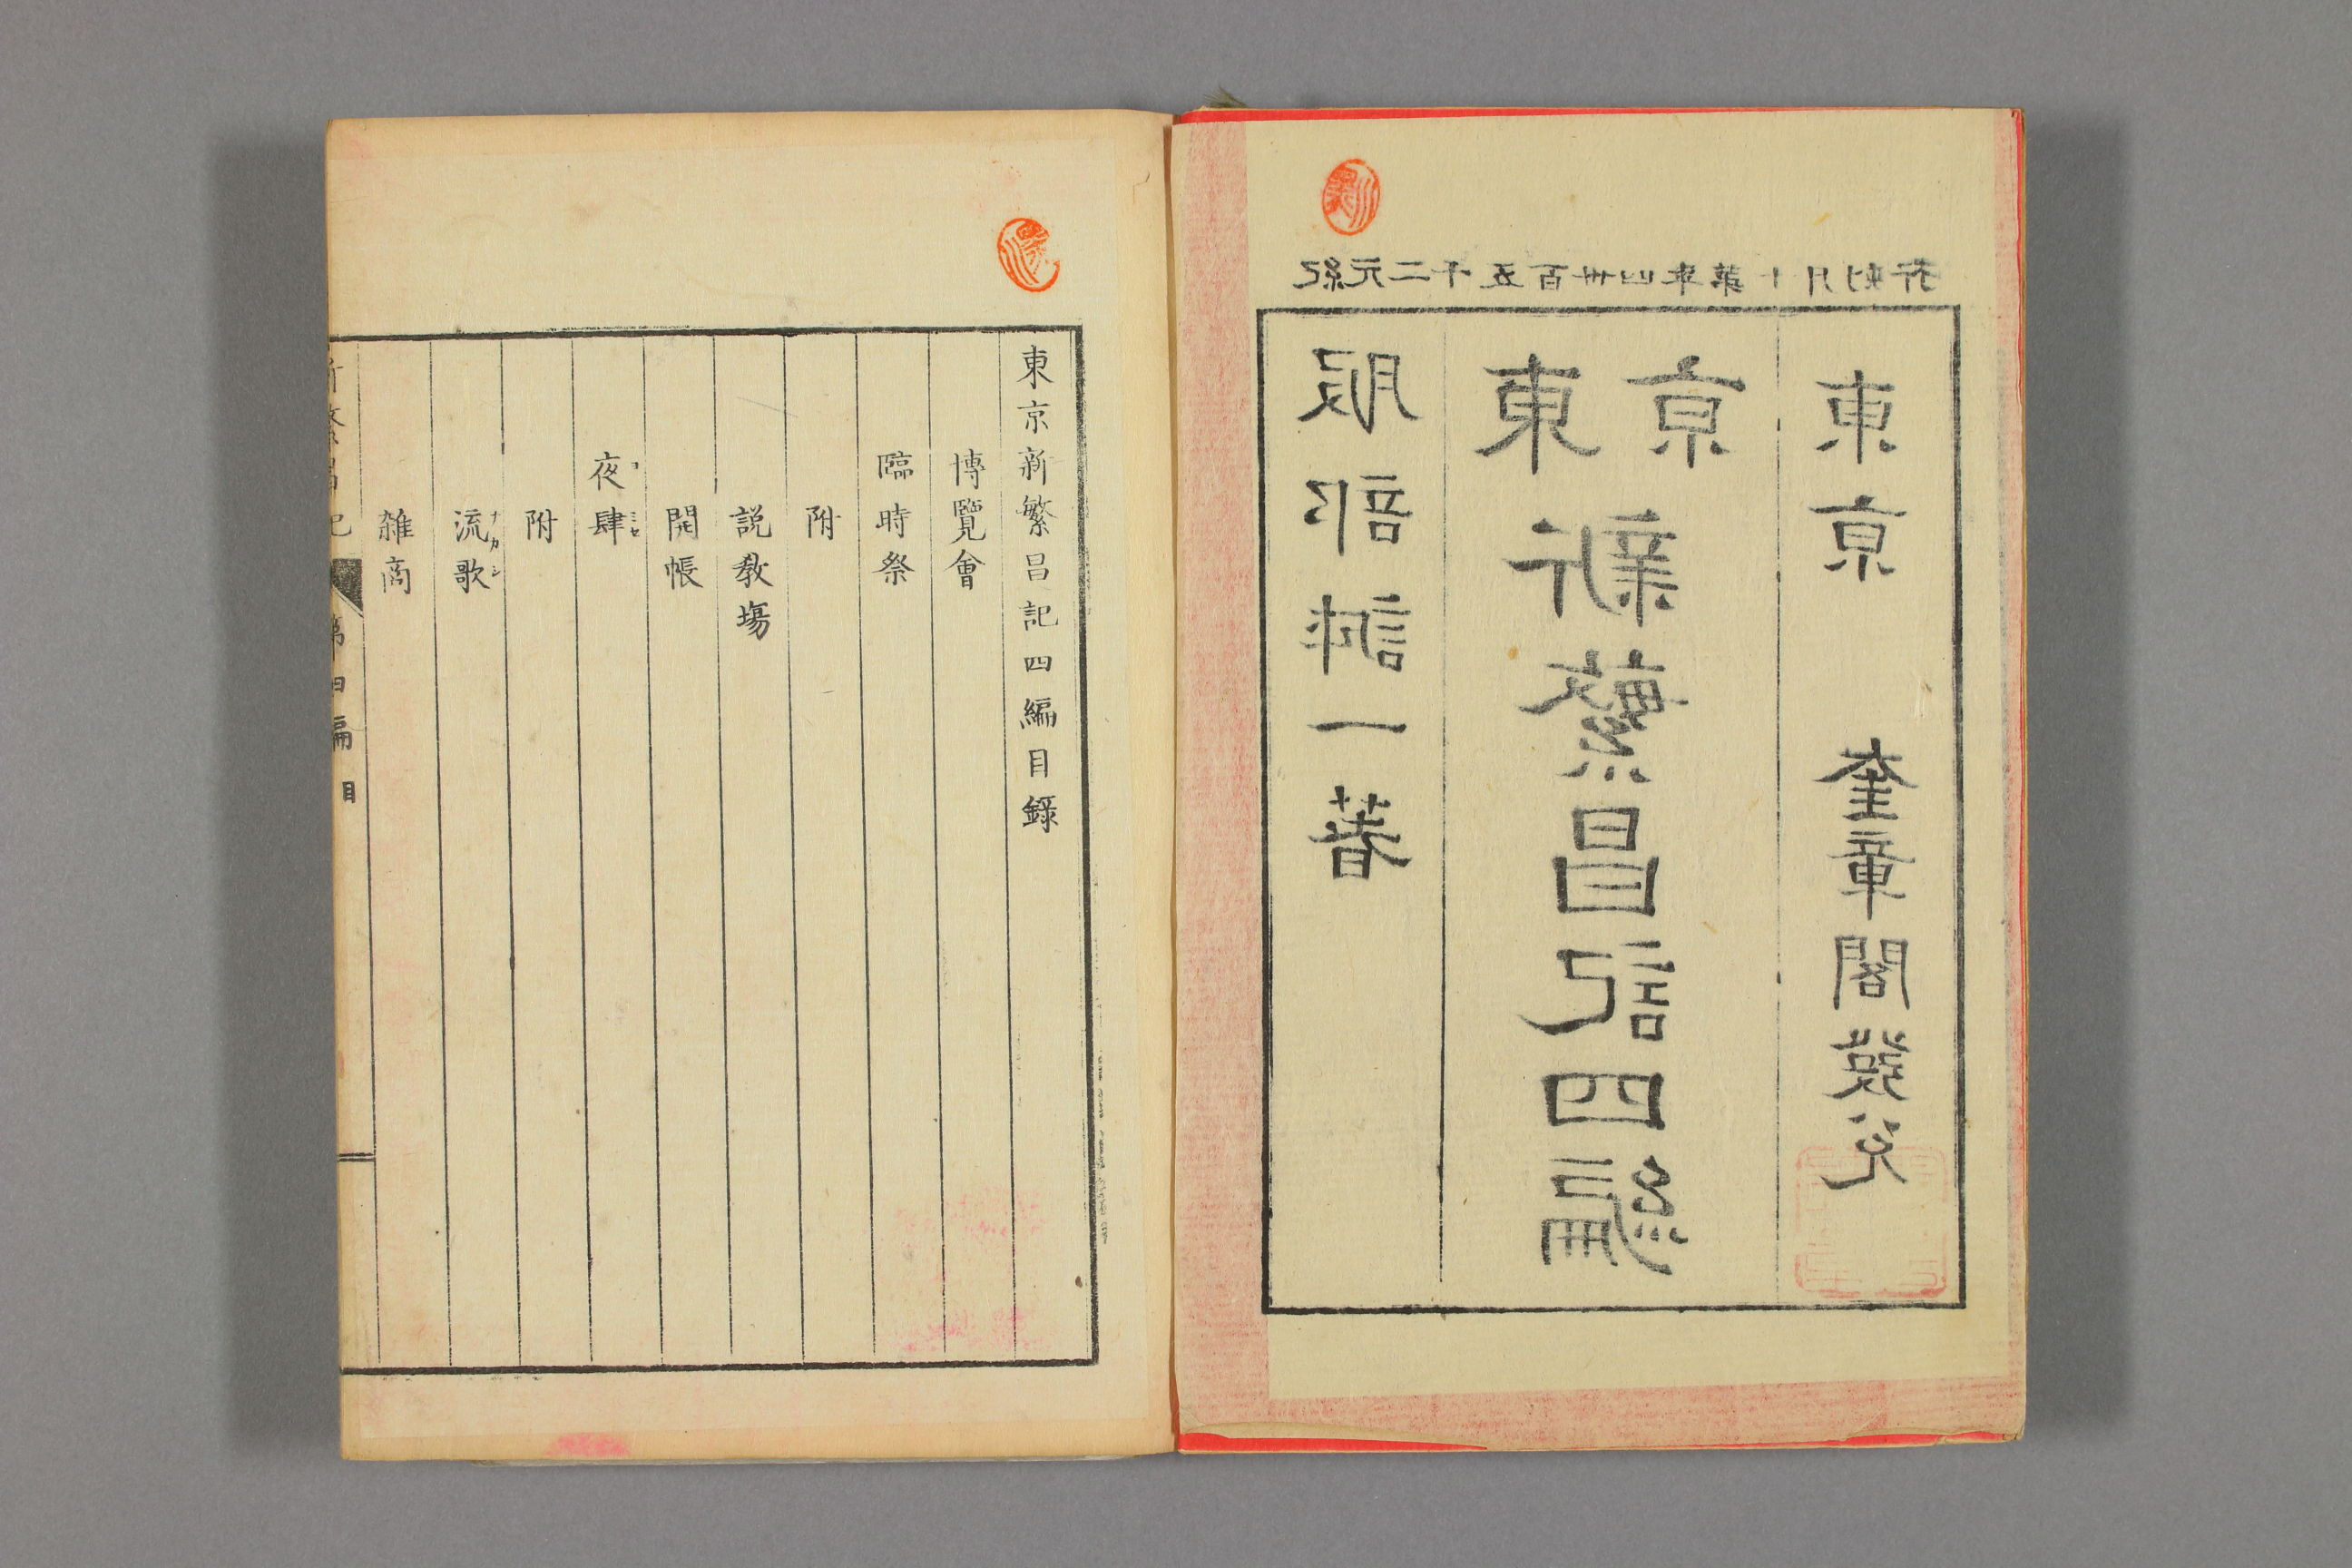 紀元二千五百卅四年第十月刻行
服部誠一著
東京新繁昌記四編
東京 奎章閣發兌
東京新繁昌記四編目錄
博覽會
臨時祭
附
説教場
開帳
夜肆
附
流歌
ナカシ
雑商
新繁昌記 第四編 目